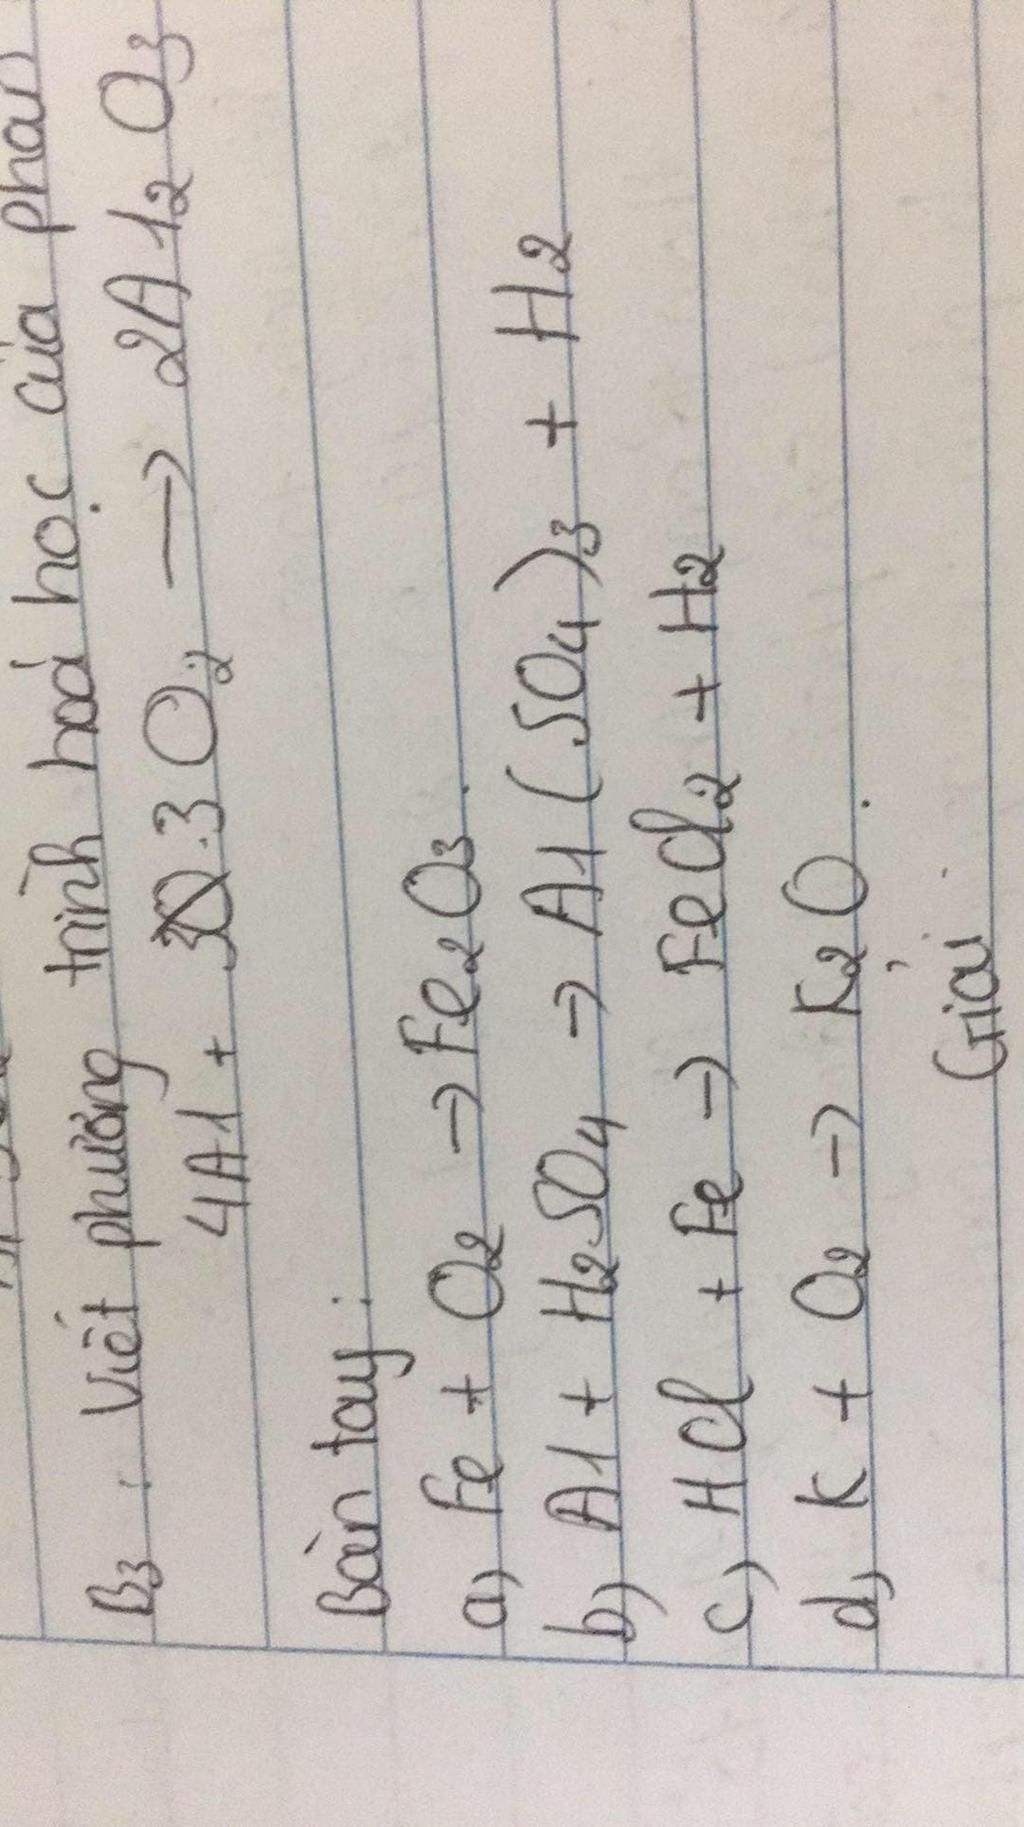 B3 : Viết phương trình hoá học của phản
4Al + 3O2 → 2Al2O3
Bàn tay :
a, Fe + O2 → Fe2O3.
b, Al + H2SO4 → Al(SO4)3 + H2
c, HCl + Fe → FeCl2 + H2
d, K + O2 → K2O.
Giải